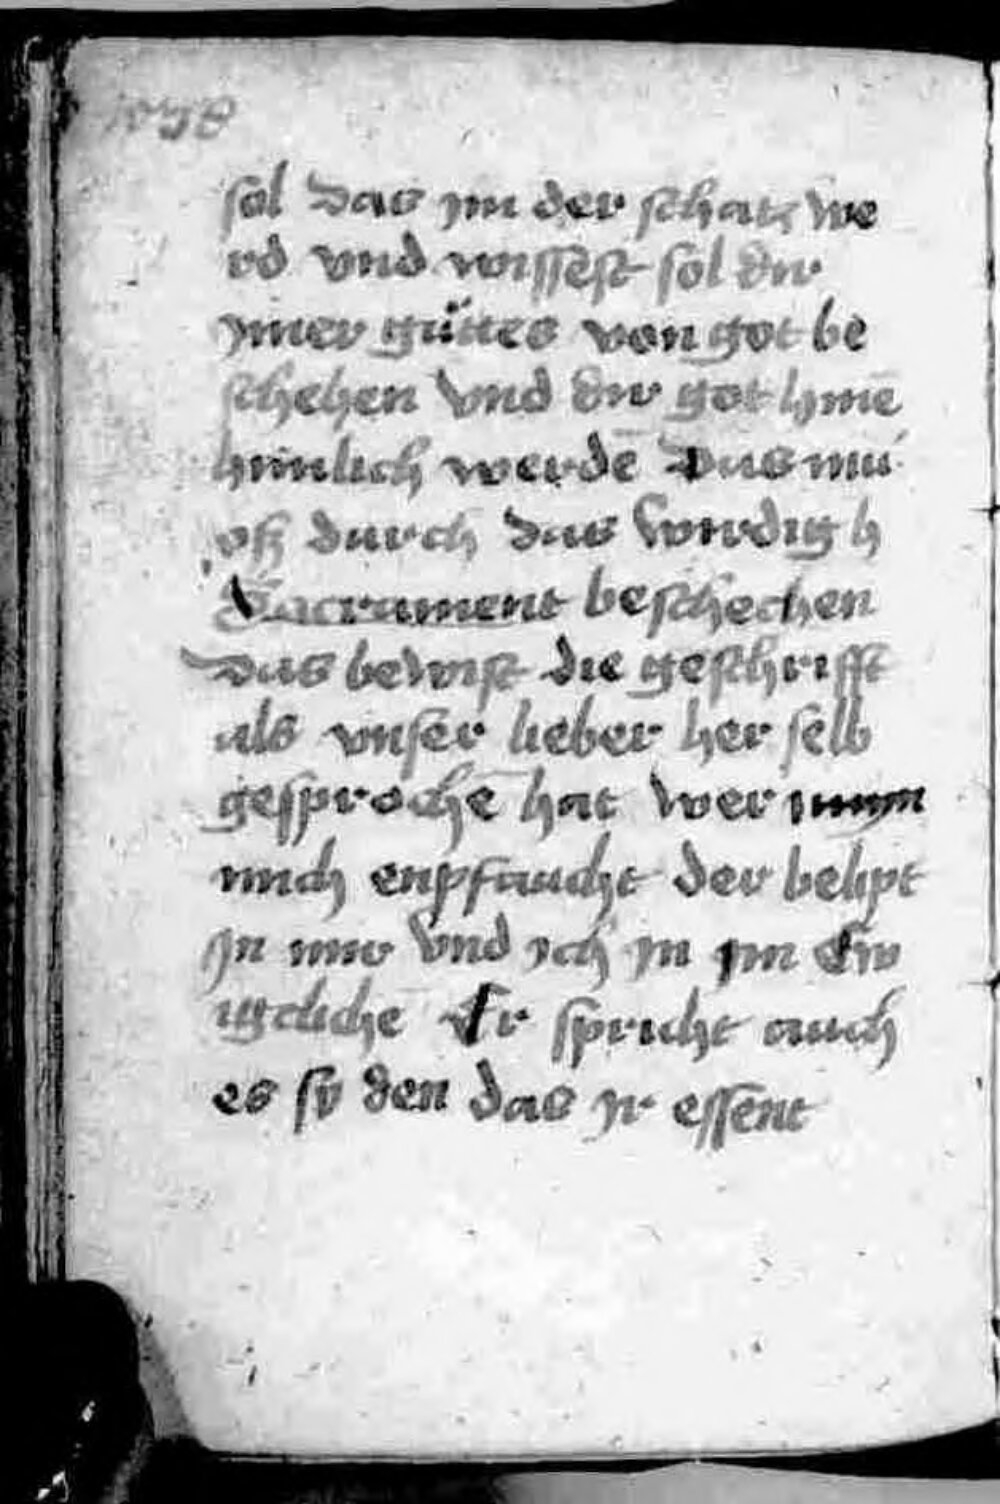 sol das ym der schatz we
rd vnd wissest sol dir
ymer gůttes von got be
schehen vnd dir got
heimlich werdē Das mü
oß durch das wirdig h
Sacrament beschechen
Das bewist die geschrifft
als vnser lieber her selb
gesprochē hat wer
mich enpfaucht der belipt
jn mir vnd ich jn jm Ew
Er spricht auch
es sy den das yr essent